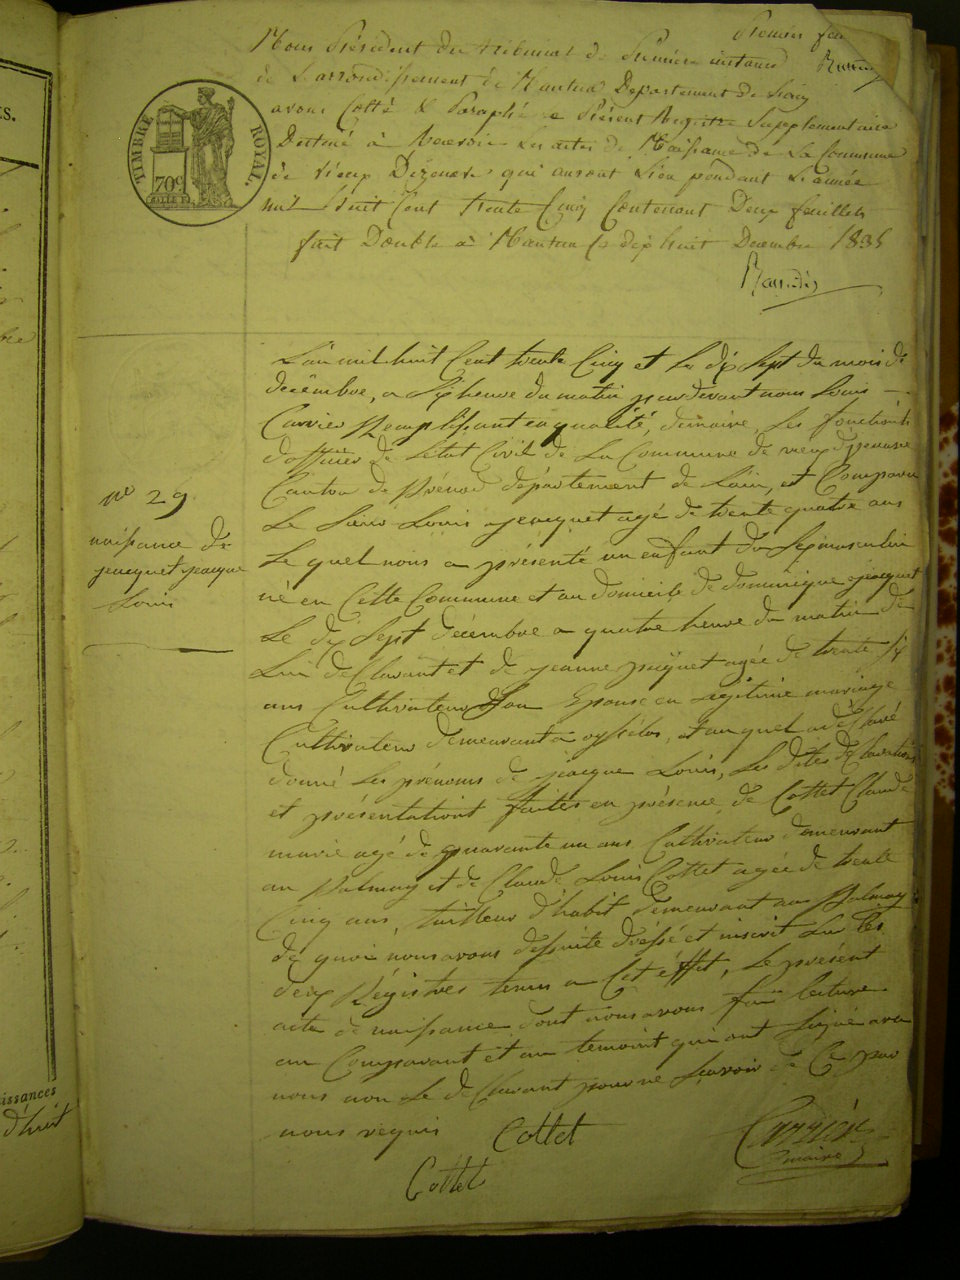 Premier feu
Nous Président du tribunal de Première instance
de L'arrondissement de Nantua Département de L'ain
avons Cotté & Paraphé le Présent Registre Supplémentaire
Destiné à Recevoir Les actes de Naissance de La Commune
de vieux Dizenave qui auront Lieu pendant L'année
mil huit Cent trente Cinq Contenant Deux feuillets
fait Double à Nantua le dix huit Decembre 1835
TIMBRE ROYAL.
70c
L'an mil huit Cent trente Cinq et Le dix Sept du mois de
decêmbre, a Six heure du matin pardevant nous Louis
Carrier Remplissant en qualité, de maire, Les fonctions
d'officier de L'état Civil de La Commune de vieux dizenave
Canton de Brenod département de Lain, est Comparu
Le Sieur Louis jeacquet agé de trente quatre ans
Le quel nous a présenté un enfant du Sexe masculin
né en Cette Commune et au domicile de dominique jeacquet
Le dix Sept décembre a quatre heure du matin de
Lui déClarant et de jeanne agée de trente Six
ans Cultivateur Son Epouse en Legitime mariage
Cultivateur demeurant a et au quel a déClaré
donné Les prénoms de jeacque Louis, Les dites déClarations
et présentationt faites en présence de Cottet Claude
marie agé de quarante un ans Cultivateur demeurant
au Balmay et de Claude Louis Cottet agée de trente
Cinq ans, tailleur d'habit demeurant au Balmay
de quoi nous avons dessuite dréssé et inscrit Sur les
deux Régistres tenus a Cet éffet, Le présent
acte de naissance dont nous avons fait lecture
au Comparant et au temoint qui ont Signé avec
nous non Le déClarant pour ne Savoir de Ce par
nous requis
Cottet
Carrier
maire
Cottet
nº 29
naissance de
jeacquet jeacque
Louis
S.
issances
d'huit